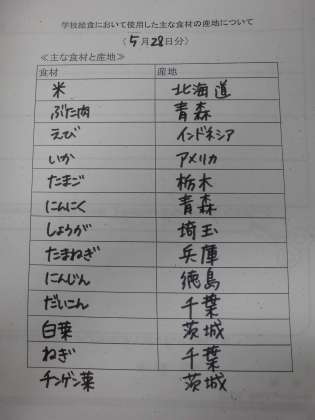 学校給食において使用した主な食材の産地について
（5月28日分）
≪主な食材と産地≫
食材 産地
米 北海道
ぶた肉 青森
えび インドネシア
いか アメリカ
たまご 栃木
にんにく 青森
しょうが 埼玉
たまねぎ 兵庫
にんじん 徳島
だいこん 千葉
白菜 茨城
ねぎ 千葉
チンゲン菜 茨城